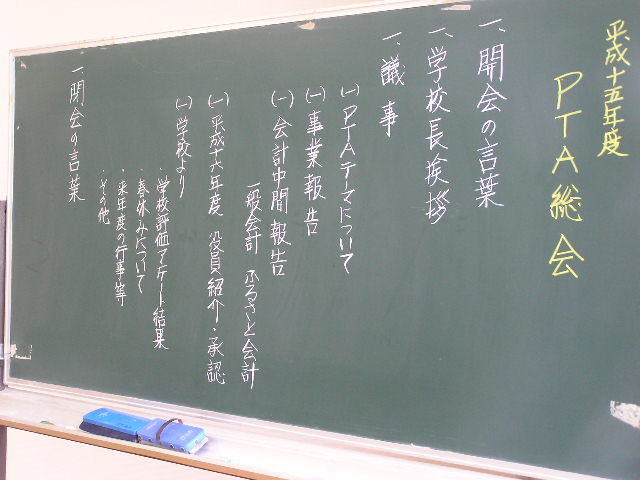 平成十五年度
PTA総会
一、開会の言葉
一、学校長挨拶
一、議事
(一)PTAテーマについて
(一)事業報告
(一)会計中間報告
一般会計 ふるさと会計
(一)平成十六年度 役員紹介・承認
(一)学校より
・学校評価アンケート結果
・春休みについて
・来年度の行事等
・その他
一、閉会の言葉